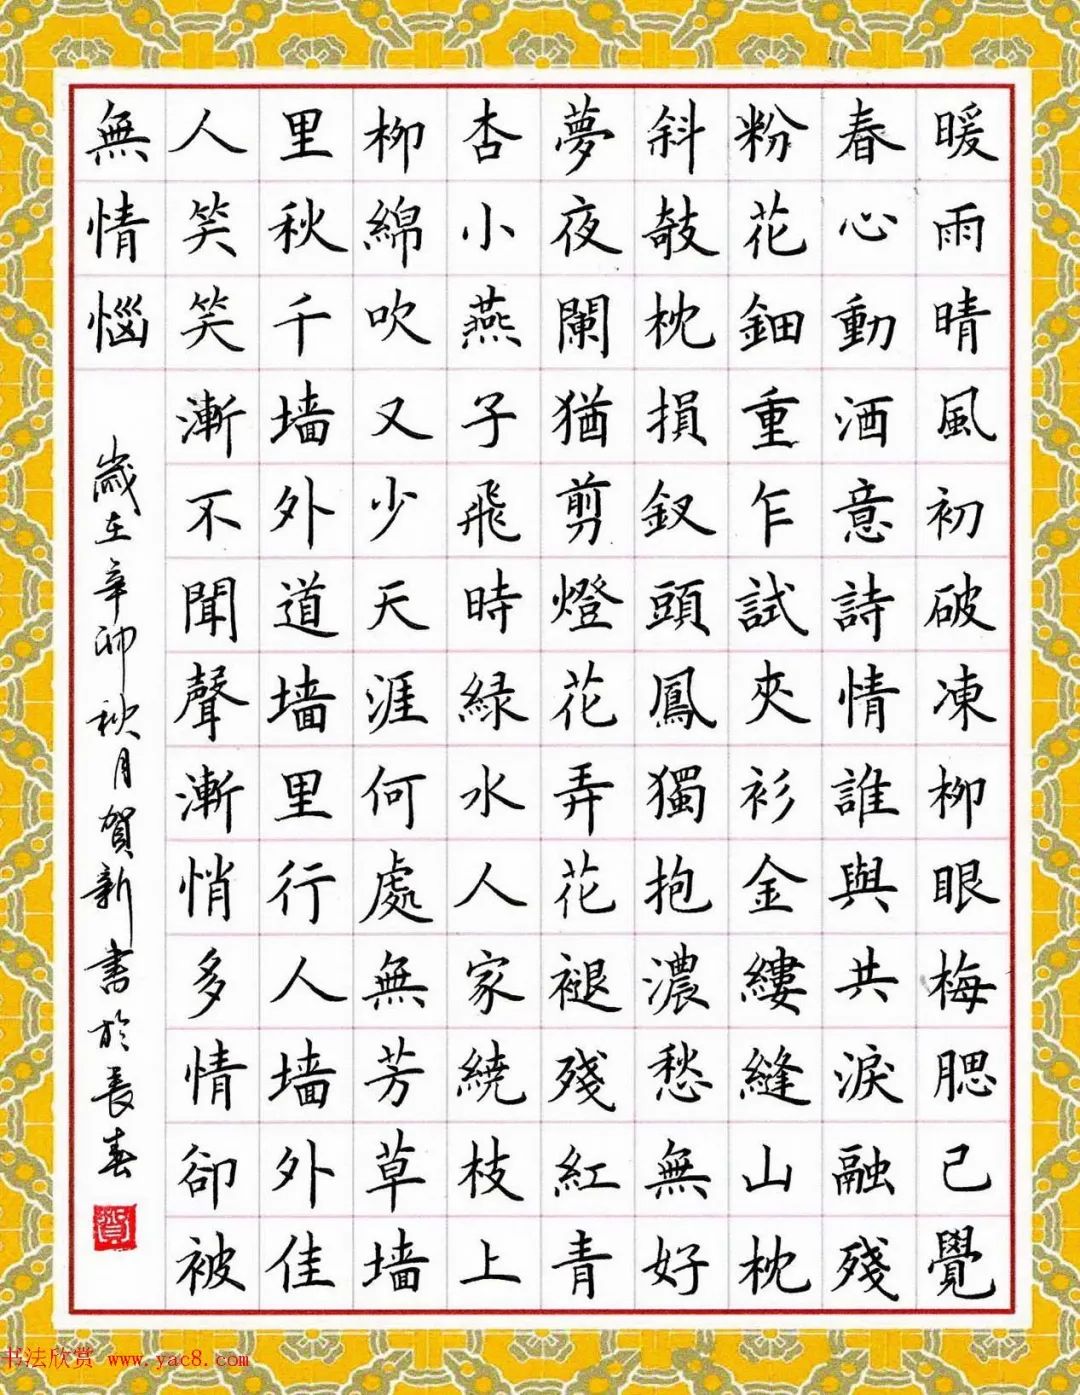 暖雨晴風初破凍柳眼梅腮己覺
春心動酒意詩情誰與共淚融殘
粉花鈿重乍試夾衫金縷縫山枕
斜攲枕損釵頭鳳獨抱濃愁無好
夢夜闌猶剪燈花弄花褪殘紅青
杏小燕子飛時緑水人家繞枝上
柳綿吹又少天涯何處無芳草墙
里秋千墙外道墙里行人墙外佳
人笑笑漸不聞聲漸悄多情卻被
無情惱
歲在辛卯秋月賀新書於長春
賀
书法欣赏 www.yac8.com